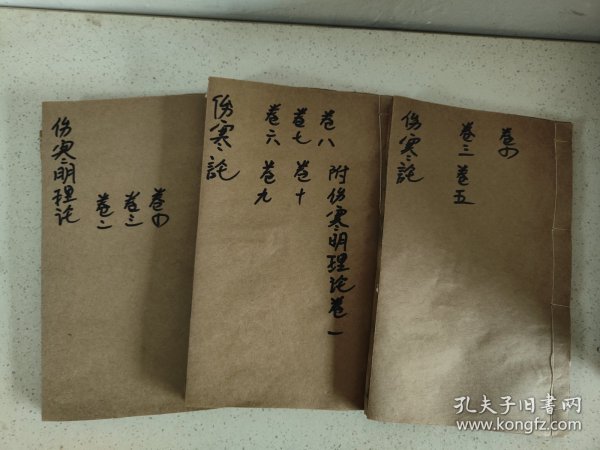 伤寒明理论
卷二
卷三
卷四
伤寒论
卷六 卷九
卷七 卷十
卷八 附伤寒明理论卷一
伤寒论
卷三 卷五
卷四
孔夫子旧书网
www.kongfz.com